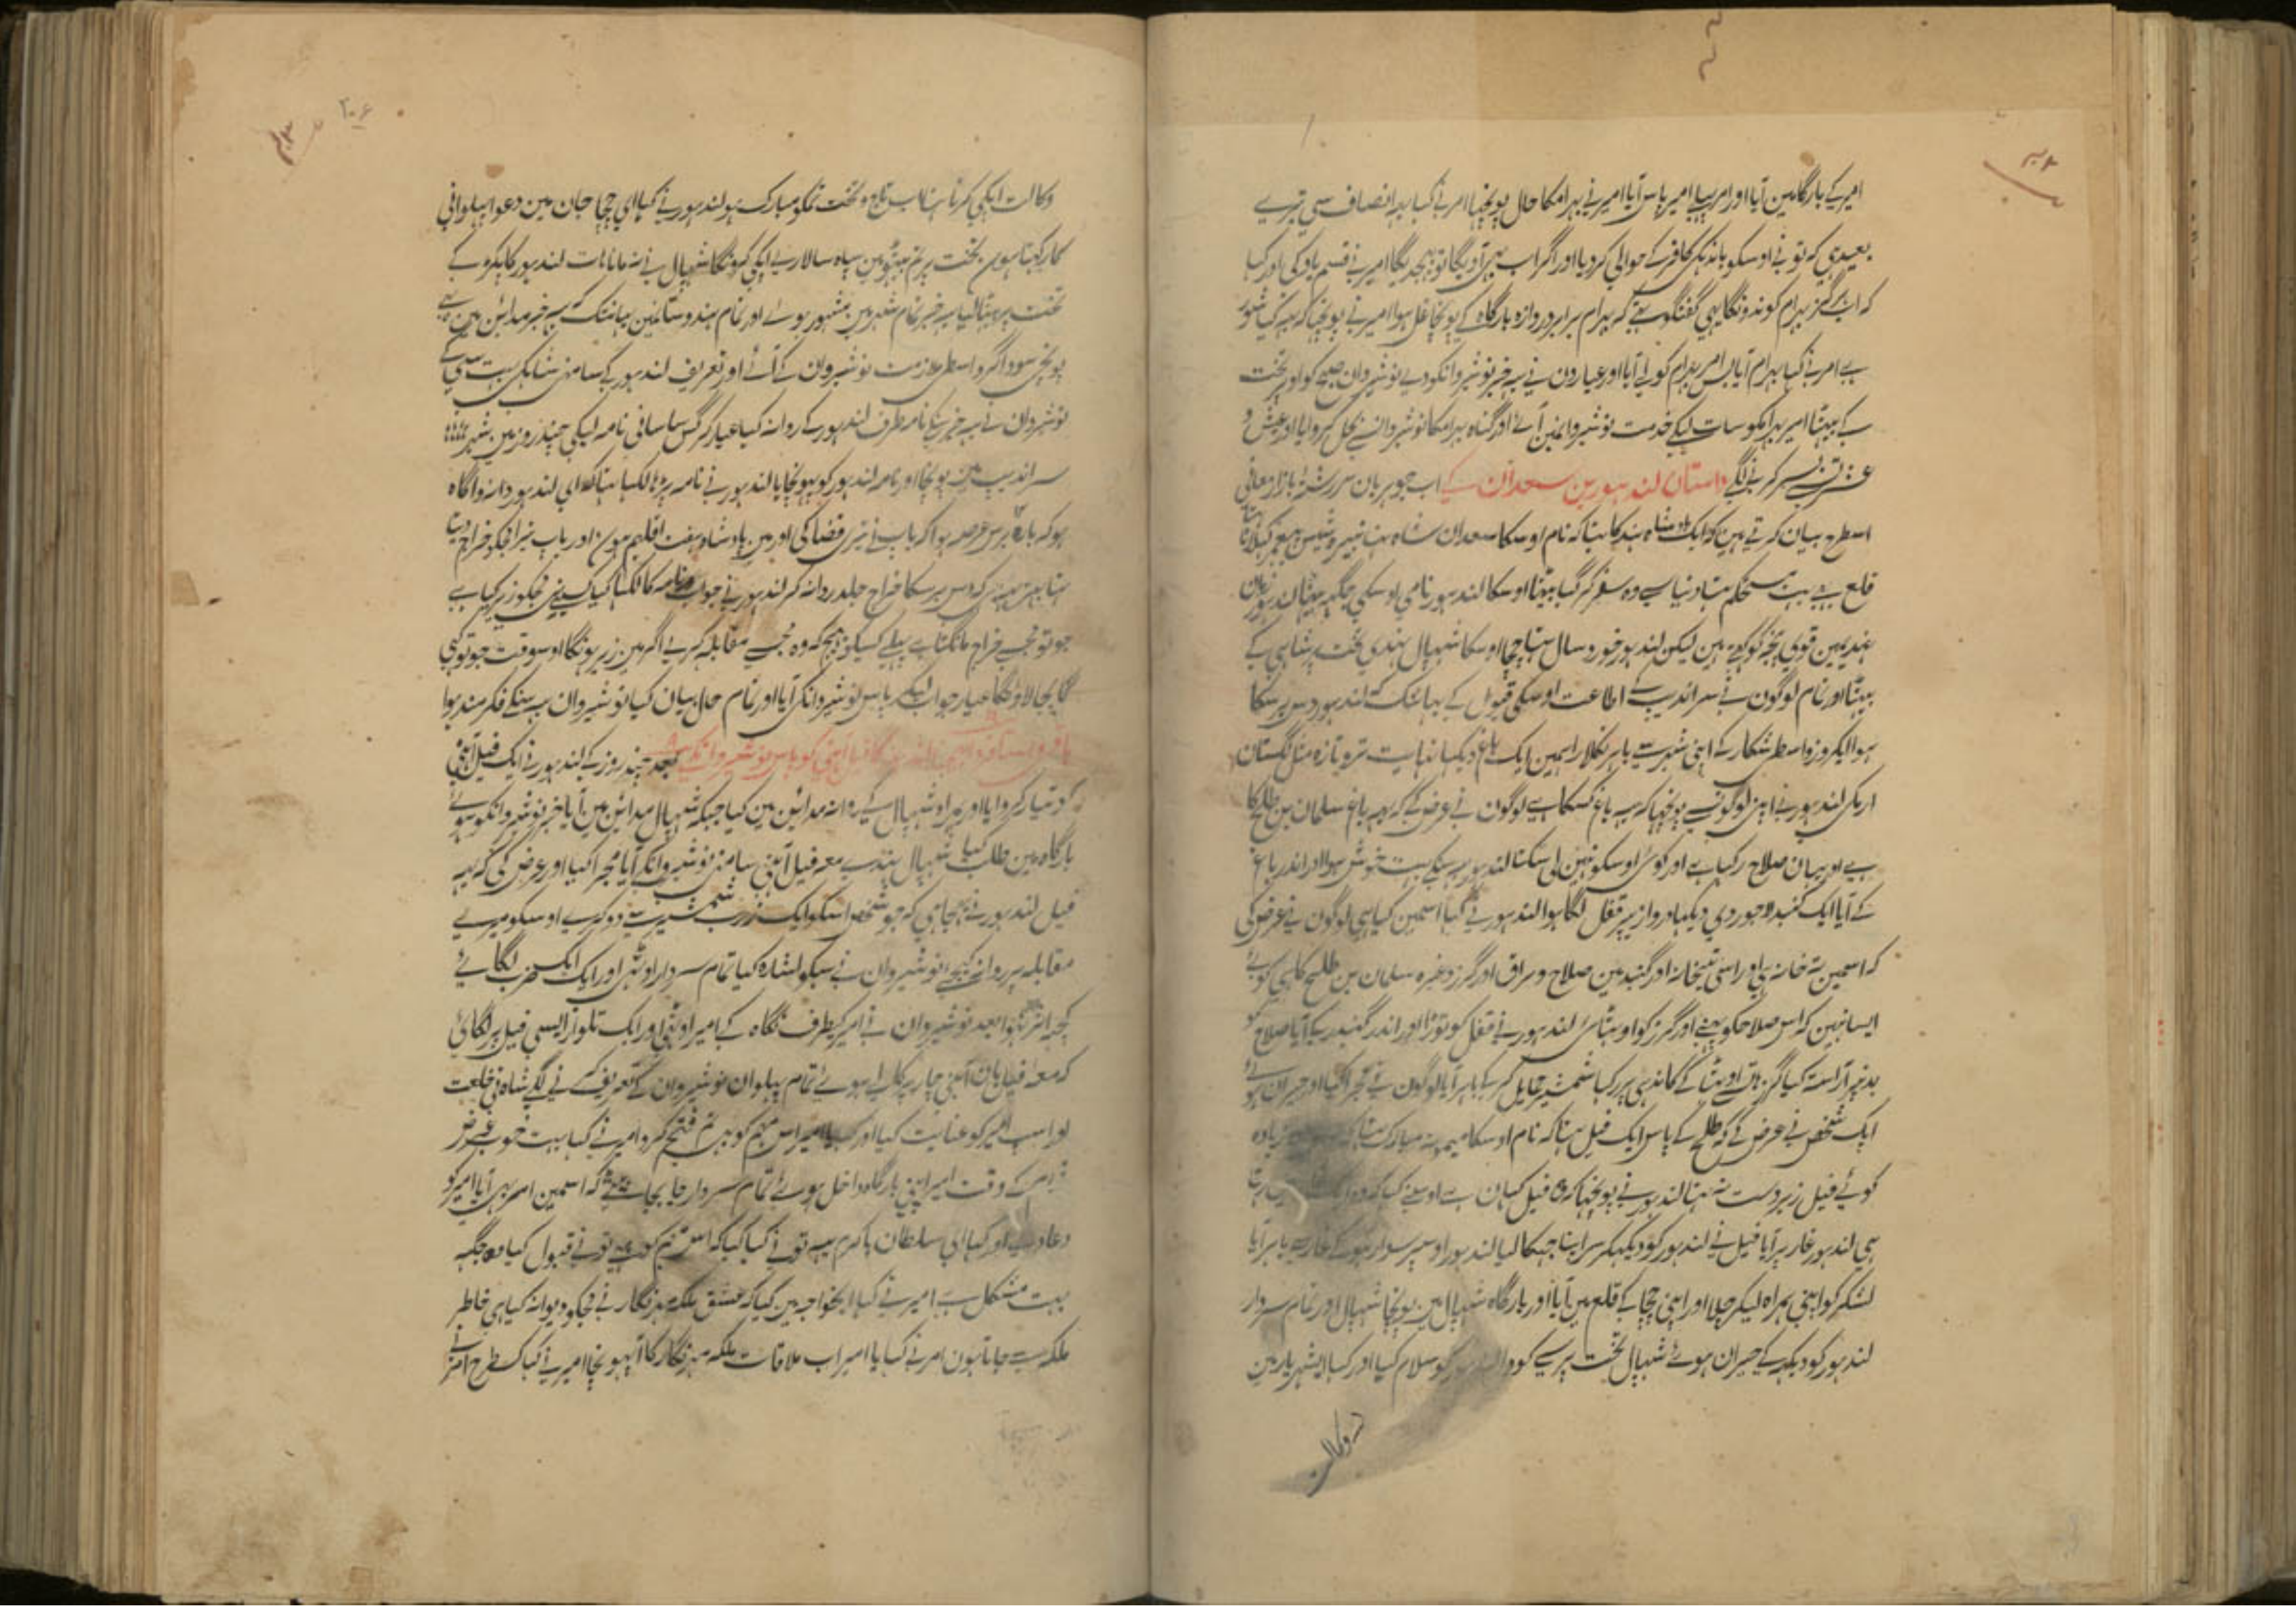 امیر کے بارگاہ مین آیا اور امیر پاس آیا امیر نے بہرام کا حال پونچہا امر نے کہا بعید انصاف سی تیرے
بعیدہی کہ تو نے اوسکو باندہکی کافر کے حوالی کر دیا اور اگر اب بہی آویگا تو بہیجدیگا امیر نے قسم یاد کی اور کہا
کہ اب ہرگز بہرام کو ندونگا یہی گفتگو تہے کہ بہرام برابر دروازہ بارگاہ کے پونچا غل ہوا امیر نے پونچہا کہ یہہ کیا شور
ہے امر نے کہا بہرام آیا پس امر بہرام کو لے آیا اور عیارون نے یہہ خبر نوشیروانکو دے نوشیروان صبح کو اوپر تخت
کے بیٹہا امیر بہرامکو سات لیکے خدمت نوشیروانمین آئے اور گناہ بہرامکا نوشیروانسے بحل کروایا اور عیش و
عشرت بسر کرنے لگے داستان لندہور بن سعدان کے اب جوہریان سررشتۂ بازار معانی
اسطرح بیان کرتے ہین کہ ایک بادشاہ ہند کا تہا کہ نام اوسکا سعدان شاہ تہا
قلع ہے بہت مستحکم تہا دنیا سے وہ سفر کر گیا بیٹہا اوسکا لندہور نامی اوسکی جگہہ بیٹہا لندہور زبان
ہندیمین قوی پنجہ کو کہتے ہین لیکن لندہور خورد سال تہا چچا اوسکا شہپال ہندی تخت پر شاہی کے
بیٹہا اور تمام لوگون نے سراندیب کے اطاعت اوسکی قبول کے یہانتک کہ لندہور دس برسکا
ہوا ایکروز واسطی شکار کے اپنی شہر سے باہر نکلا راہمین ایک باغ دیکہا نہایت تر و تازہ مثل گلستان
ارم کی لندہور نے اپنی لوگونسے پونچہا کہ یہہ باغ کسکا ہے لوگون نے عرض کے کہ یہہ باغ سلمان بن طلیح کا
ہے اور یہان صلاح رکہا ہے اور کوئ اوسکو نہین لی سکتا لندہور یہہ سنکے بہت خوش ہوا اور اندر باغ
کے آیا ایک گنبد لاجوردی دیکہا دروازیپر قفل لگا ہوا لندہور نے کہا اسمین کیا ہی لوگون نے عرض کی
کہ اسمین تہخانہ ہی اور اسی تہخانہ اور گنبد مین صلاح و براق اور گرز وغیرہ سلمان بن طلیح کا ہی کوئے
ایسا نہین کہ اس صلاحکو پہنے اور گرز کو اوٹہائ لندہور نے قفل کو توڑا اور اندر گنبد کے آیا صلاح کو
بدنپر آراستہ کیا گرز ہاتہسے اوٹہا کے کاندہی پر رکہا شمشیر حمایل کر کے باہر آیا لوگون نے مجرا کیا اور حیران ہوئے
ایک شخص نے عرض کے کہ طلیح کے پاس ایک فیل تہا کہ نام اوسکا میمونہ مبارک تہا کہ زیادہ
کوئے فیل زبردست نہ تہا لندہور نے پونچہا کہ وہ فیل کہان ہے اوسنے کہا کہ وہ
ہی لندہور غار پر آیا فیل نے لندہور کو دیکہکر سر اپنا جہکا لیا لندہور اوسپر سوار ہو کے غار سے باہر آیا
لشکر کو اپنی ہمراہ لیکر چلا اور اپنی چچا کے قلع مین آیا اور بارگاہ شہپال مین پونچا شہپال اور تمام سردار
لندہور کو دیکہہ کے حیران ہوئے شہپال تخت پر سے کودا لندہور کو سلام کیا اور کہا ای شہریار مین
وکالت
وکالت ایکی کرتا تہا اب تاج و تخت تمکو مبارک ہو لندہور نے کہا ای چچا جان مین دعوا پہلوانی
کا رکہتا ہون تخت پر تم بیٹہو مین سپاہ سالاری ایکی کرونگا شہپال نے نہ مانا ہات لندہور کا پکڑ کے
تخت پر بٹہا لیا یہہ خبر تمام شہر مین مشہور ہوئے اور تمام ہندوستانمین یہانتک کہ یہہ خبر مداین مین بہی
پونچی سوداگر واسطی ملازمت نوشیروان کے آئے اور تعریف لندہور کے سامنی شاہ کی بہت سی کے
نوشیروان نے یہہ خبر سنکے نامہ طرف لندہور کے روانہ کیا عیار گرگس ساسانی نامہ لیکی چند روز مین شہر
سراندیب مین پونچا اور نامہ لندہور کو پہونچایا لندہور نے نامہ پڑہا لکہا تہا کہ ای لندہور دانہ و آگاہ
ہو کہ بارہ برس عرصہ ہوا کہ باپ نے تیری قضا کی اور مین بادشاہ ہفت اقلیم ہون اور باپ تیرا مجکو خراج دیتا
تہا بہیجئے کہ دس برسکا خراج جلد روانہ کر لندہور نے جواب نامہ کا لکہا کہ کیا کسینے مجکو زیر کیا ہے
جو تو مجہسے خراج مانگتا ہے پہلے کسیکو بہیج کہ وہ مجسے مقابلہ کرے اگر مین زیر ہونگا اوسوقت جو تو کہی
گا بجا لاونگا عیار جواب لیکر پاس نوشیروانکی آیا اور تمام حال بیان کیا نوشیروان یہہ سنکے فکرمند ہوا
بہیجنا لندہور کا فیل آہنی کو پاس نوشیروانکے بعد چند روز کے لندہور نے ایک فیل آہنی
کو تیار کروایا اور ہمراہ شہپال کے روانہ مداین مین کیا جبکہ شہپال مداین مین آیا خبر نوشیروانکو ہوئے
بارگاہ مین طلب کیا شہپال ہندے معہ فیل آہنی سامنی نوشیروانکے آیا مجرا کیا اور عرض کی کہ یہہ
فیل لندہور نے بہیجا ہی کہ جو شخص اسکو ایک ضرب شمشیر سے دو کرے اوسکو میرے
مقابلہ پر روانہ کیجے نوشیروان نے سبکو اشارہ کیا تمام سردار اوٹہی اور ایک ایک ضرب لگائے
کچہہ اثر نہوا بعد نوشیروان نے امیر کیطرف نگاہ کے امیر اوٹہی اور ایک تلوار ایسی فیل پر لگائ
کہ معہ فیلبان آہنی چار پرکالے ہوئے تمام پہلوان نوشیروان کے تعریف کرنے لگے شاہ نی خلعت
اور اسپ امیر کو عنایت کیا اور کہا یا امیر اس مہم کو بہی تم فتح کرو امیر نے کہا بہت خوب غرض
شام کے وقت امیر اپنی بارگاہ داخل ہوئے تمام سردار جا بجا بیٹہے تہے کہ اسمین امر بہی آیا امیر کو
دعا دی اور کہا ای سلطان باکرم یہہ تو نے کیا کیا کہ اس مہم کو تو نے قبول کیا وہ جگہہ
بہت مشکل ہے امیر نے کہا ایخواجہ مین کیا کہ عشق ملکہ مہرنگار نے مجکو دیوانہ کیا ہی خاطر
ملکہ سے جاتا ہون امر نے کہا یا امیر اب ملاقات ملکہ مہرنگار کا آپہونچا امیر نے کہا کسطرح امر نے